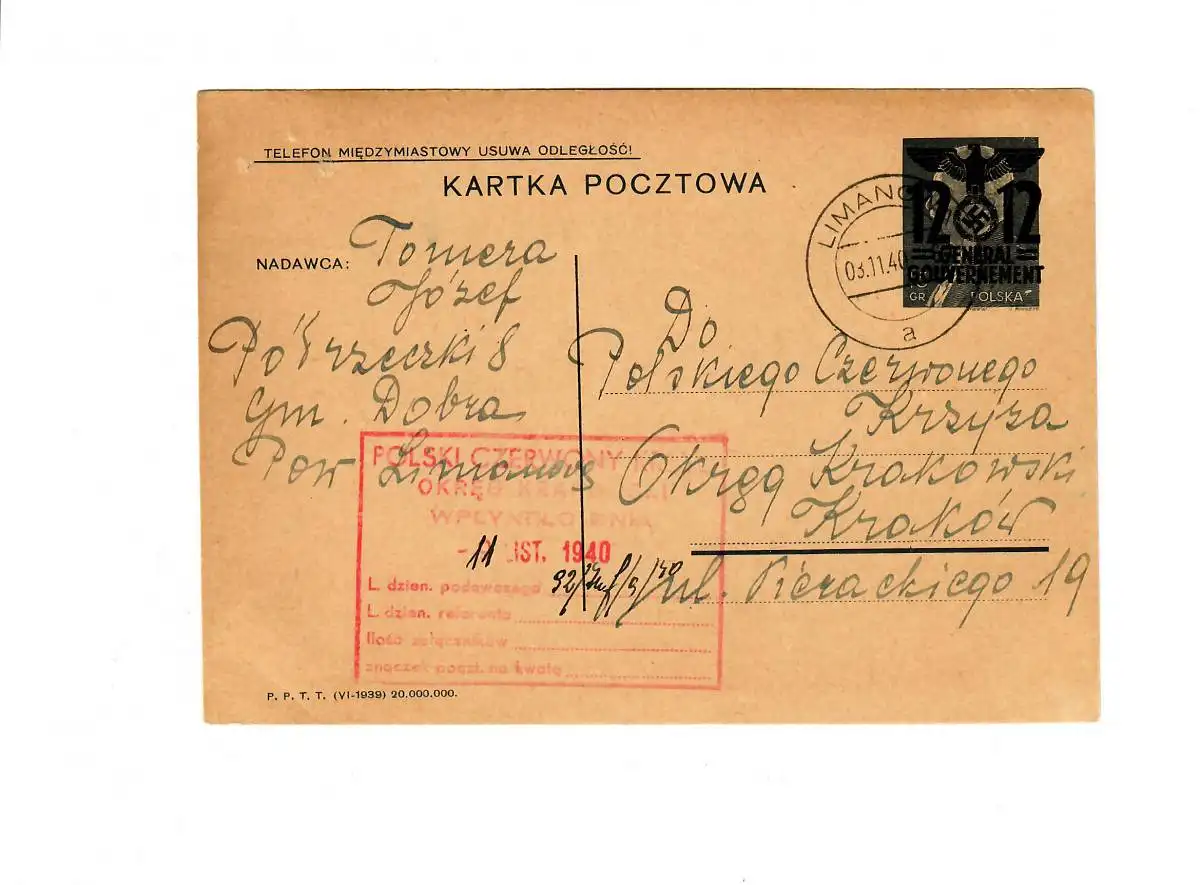 TELEFON MIĘDZYMIASTOWY USUWA ODLEGŁOŚĆ!
KARTKA POCZTOWA
12 12
GENERAL
GOUVERNEMENT
GR POLSKA
03.11.40
a
NADAWCA: Tomera
Józef
Półrzeczki 8
Gm. Dobra
Pow Limanowa
Do
Polskiego Czerwonego
Krzyża
Okręg Krakowski
Kraków
ul. Pierackiego 19
POLSKI CZERWONY
OKRĘG
WPŁYNĘŁO DNIA
11 LIST. 1940
L. dzien. podawczego
L. dzien. referenta
Ilość załączników
znaczek poczt. na kwotę
P. P. T. T. (VI-1939) 20.000.000.